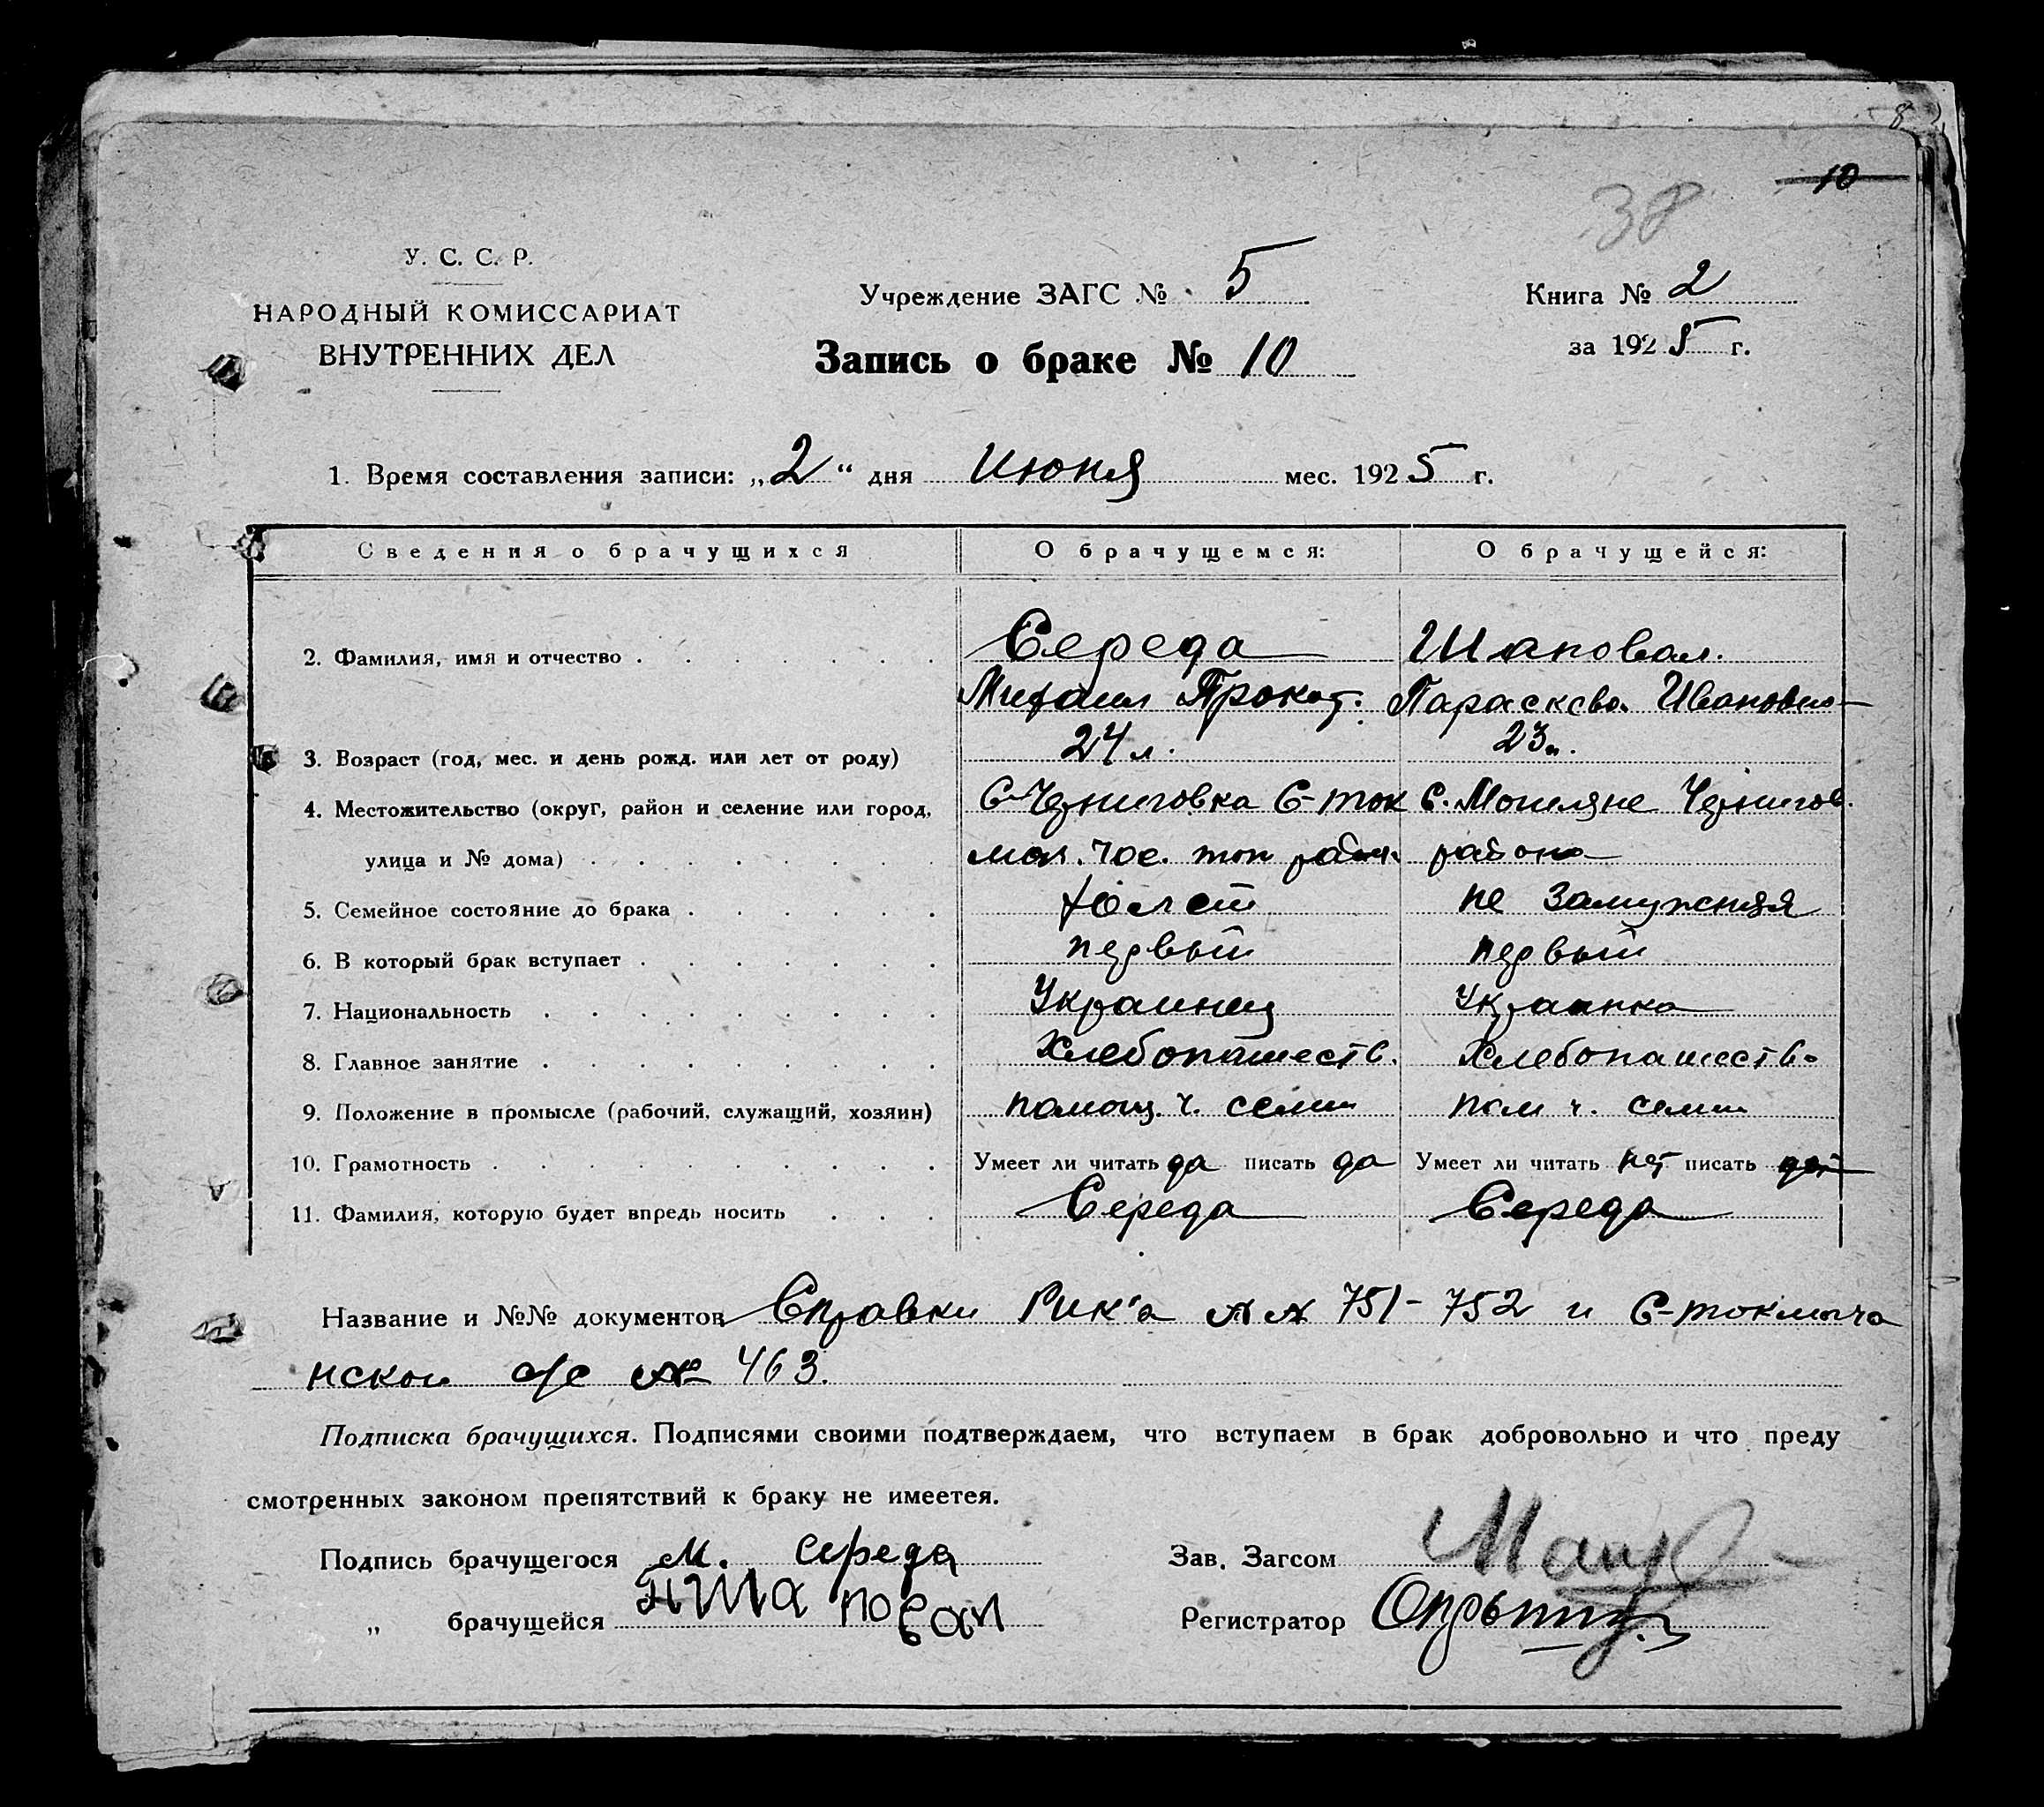 8
10
38
У. С. С. Р.
НАРОДНЫЙ КОМИССАРИАТ
ВНУТРЕННИХ ДЕЛ
Учреждение ЗАГС № 5
Книга № 2
за 1925 г.
Запись о браке № 10
1. Время составления записи: „2“ дня июня мес. 1925 г.
Сведения о брачущихся О брачущемся: О брачущейся:
2. Фамилия, имя и отчество Середа Шаповал.
Михаил Прокоф. Параскева Ивановна
3. Возраст (год, мес. и день рожд. или лет от роду) 24 л. 23 л.
4. Местожительство (округ, район и селение или город, С-Черниговка С-Ток с. Могиляне Чернигов.
улица и № дома) района
5. Семейное состояние до брака холост не замужняя
6. В который брак вступает первый первый
7. Национальность Украинец Украинка
8. Главное занятие Хлебопашеств. Хлебопашеств.
9. Положение в промысле (рабочий, служащий, хозяин) помощ. ч. семьи пом ч. семьи
10. Грамотность Умеет ли читать да писать да Умеет ли читать нет писать
11. Фамилия, которую будет впредь носить Середа Середа
Название и №№ документов Справки Рик'а №№ 751-752 и С-токмача
нской с/с № 463.
Подписка брачущихся. Подписями своими подтверждаем, что вступаем в брак добровольно и что преду
смотренных законом препятствий к браку не имеетея.
Подпись брачущегося М. середа Зав. Загсом
„ брачущейся пШаповал Регистратор